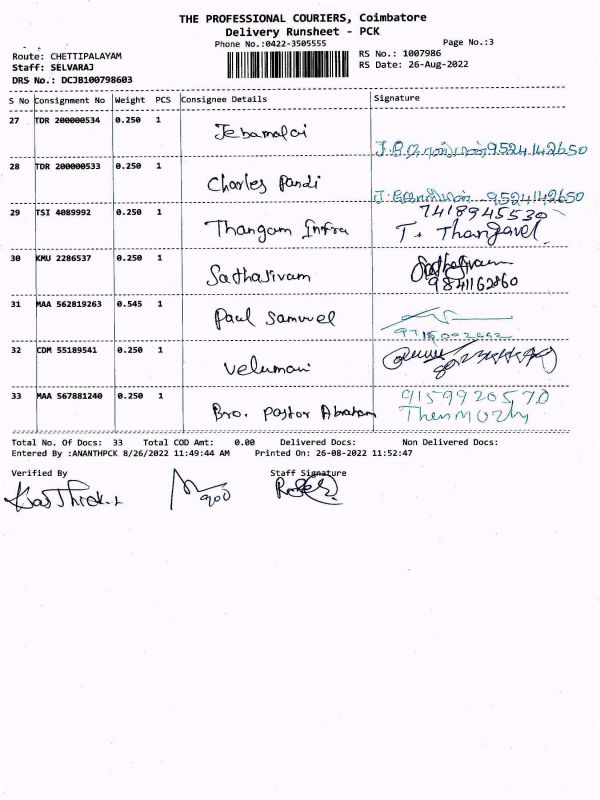 THE PROFESSIONAL COURIERS, Coimbatore
Delivery Runsheet - PCK
Phone No.:0422-3505555 Page No.:3
Route: CHETTIPALAYAM RS No.: 1007986
Staff: SELVARAJ RS Date: 26-Aug-2022
DRS No.: DCJB100798603
S No Consignment No Weight PCS Consignee Details Signature
27 TDR 200000534 0.250 1
Jebamalai
9524142650
28 TDR 200000533 0.250 1
Charles Pandi
9524142650
29 TSI 4089992 0.250 1 7418945530
Thangam Infra T. Thangavel
30 KMU 2286537 0.250 1
Sathasivam Sathasivam
9841162860
31 MAA 562819263 0.545 1
Paul Samuel
32 CDM 55189541 0.250 1
Velumani
33 MAA 567881240 0.250 1 9159920570
Bro. Pastor Abraham Thenmozhy
Total No. Of Docs: 33 Total COD Amt: 0.00 Delivered Docs: Non Delivered Docs:
Entered By :ANANTHPCK 8/26/2022 11:49:44 AM Printed On: 26-08-2022 11:52:47
Verified By Staff Signature